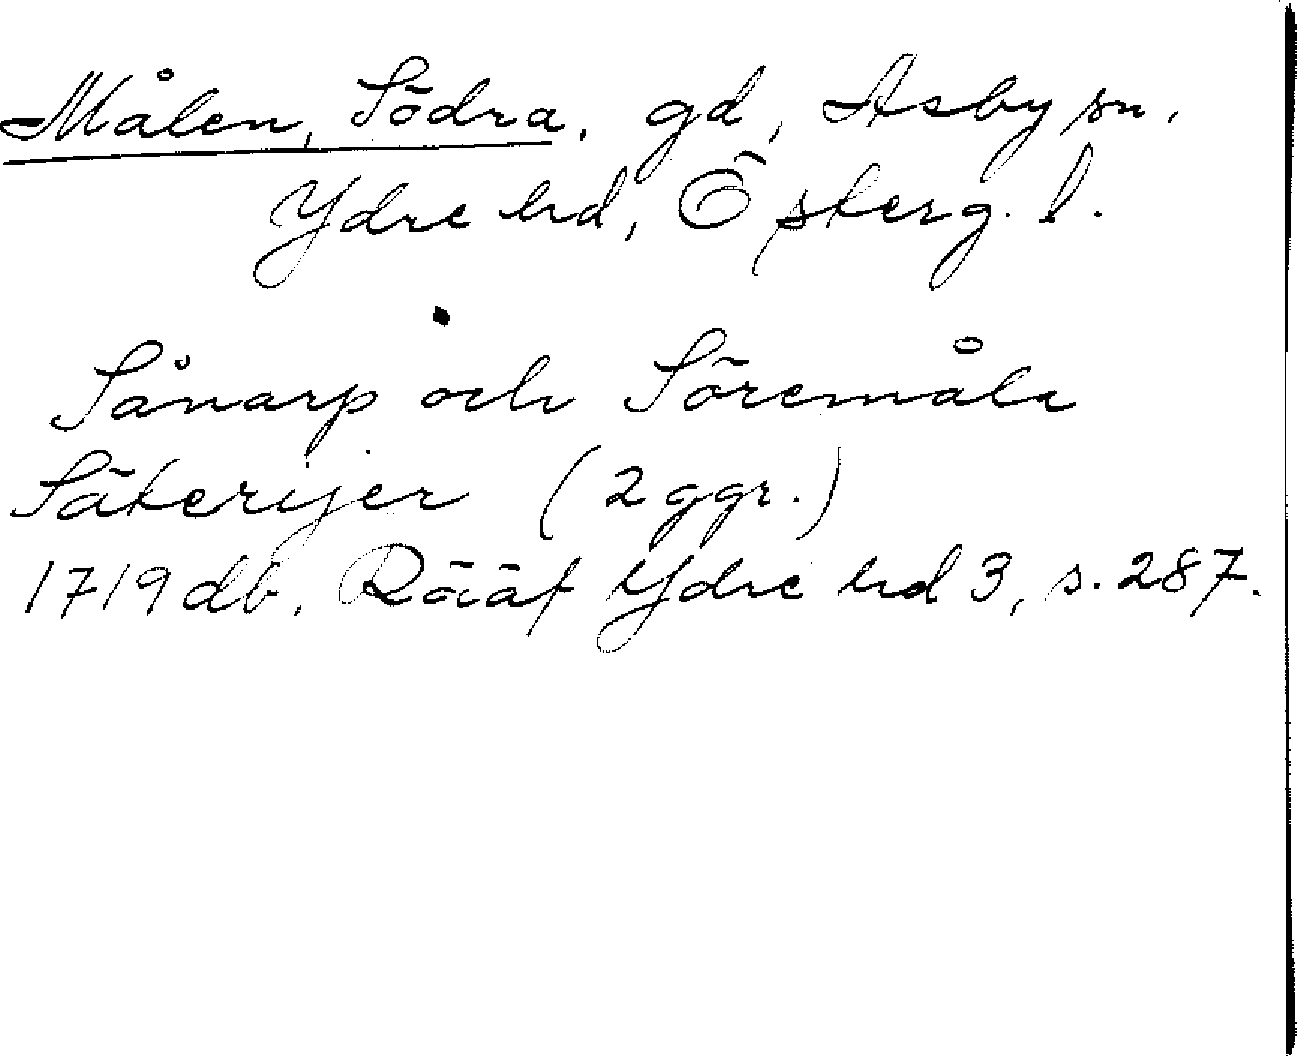 Målen, Södra, gd, Asby sn.
Ydre hd, Österg. l.
Sånarp och Söremåla
Säterijer (2 ggr.)
1719 db. Rääf Ydre hd 3, s. 287.